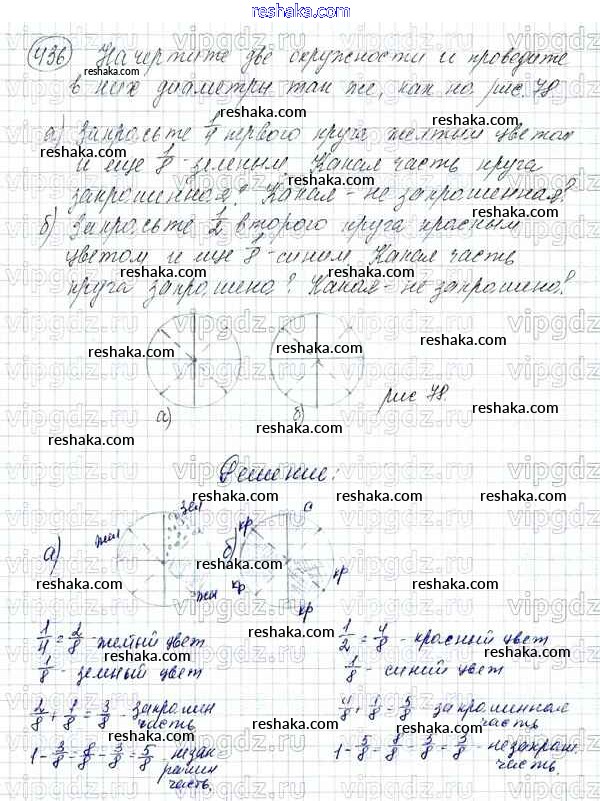 reshaka.com
436 Начертите две окружности и проводите
в них диаметры так же, как на рис. 78.
а) Закрасьте 1/4 первого круга желтым цветом
и еще 1/8 - зеленым. Какая часть круга
закрашенная? Какая - не закрашенная?
б) Закрасьте 1/2 второго круга красным
цветом и еще 1/8 - синим. Какая часть
круга закрашено? Какая - не закрашено?
а) б) рис 78.
Решение:
а) жел зел жел б) кр с кр кр кр
1/4 = 2/8 - желтый цвет 1/2 = 4/8 - красный цвет
1/8 - зеленый цвет 1/8 - синий цвет
2/8 + 1/8 = 3/8 - закрашен часть 4/8 + 1/8 = 5/8 - закрашенная часть
1 - 3/8 = 8/8 - 3/8 = 5/8 - незакрашен часть. 1 - 5/8 = 8/8 - 5/8 = 3/8 - незакраш часть.
vipgdz.ru